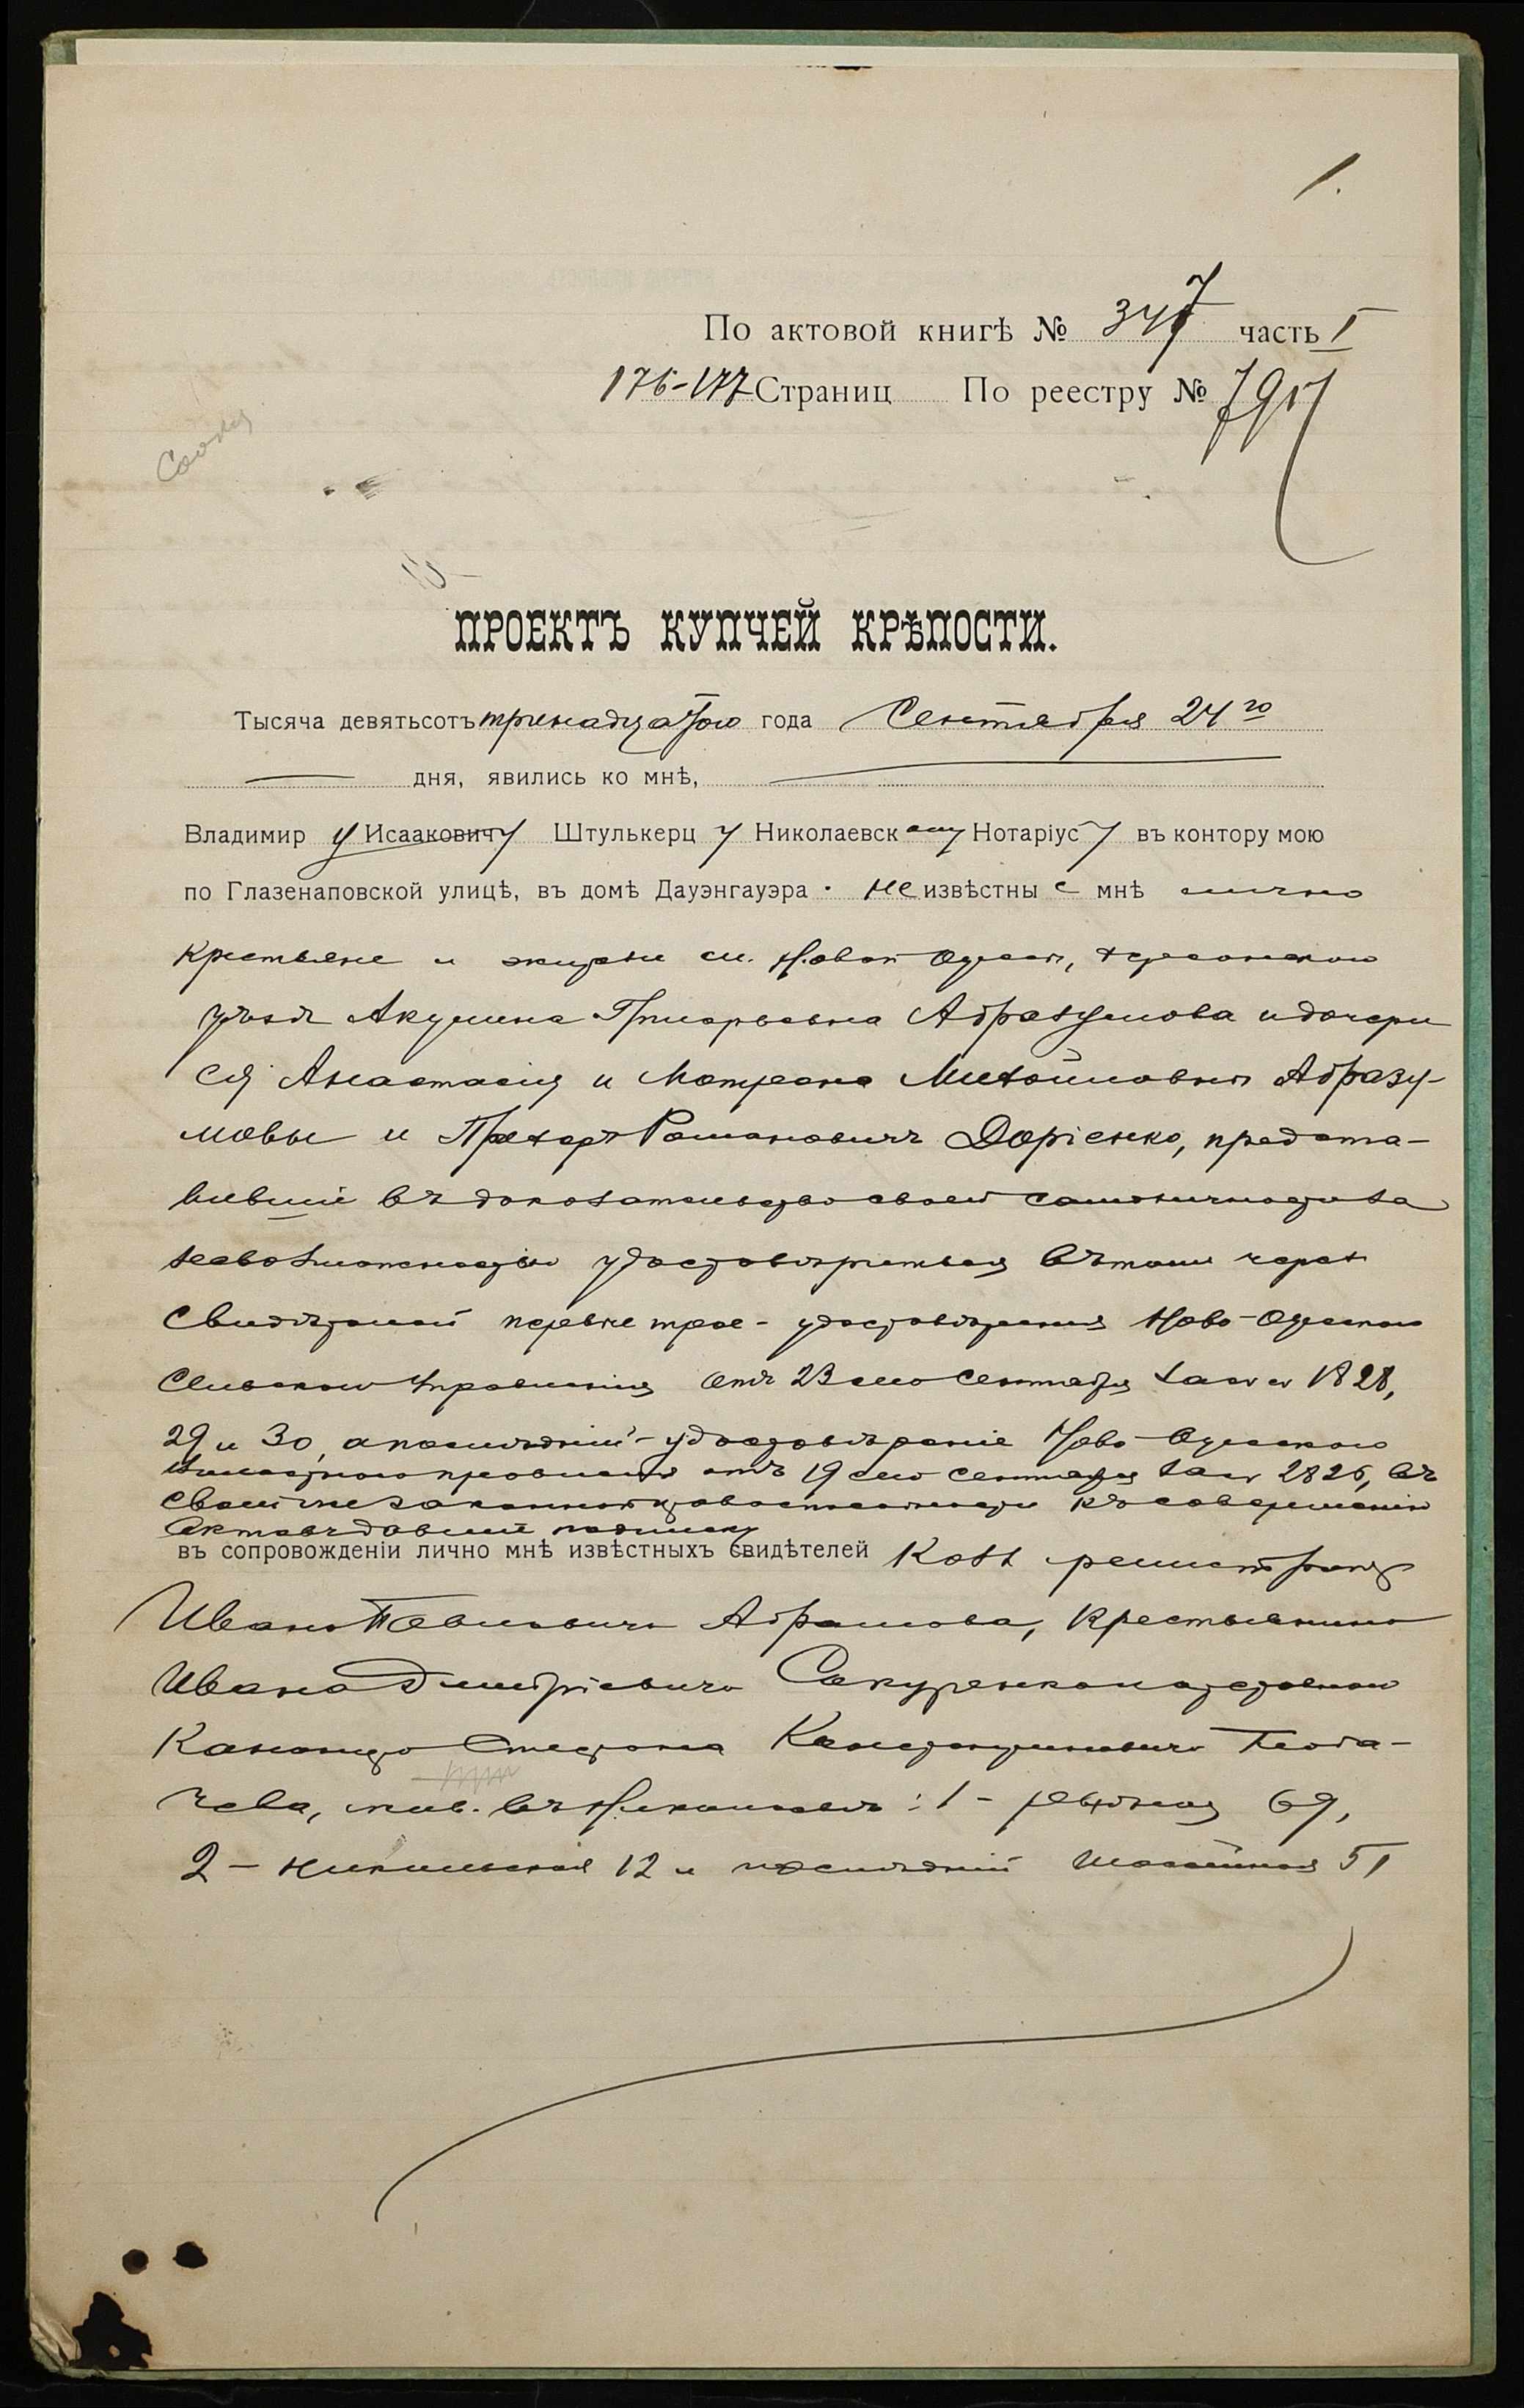 1.
По актовой книгѣ № 347 часть I
176-177 Страниц По реестру № 7917
ПРОЕКТЪ КУПЧЕЙ КРѢПОСТИ.
Тысяча девятьсотъ тринадцатого года Сентября 24го
дня, явились ко мнѣ,
Владимиру Исааковичу Штулькерцу Николаевскому Нотаріусу въ контору мою
по Глазенаповской улицѣ, въ домѣ Дауэнгауэра. неизвѣстные мнѣ лично
крестьяне и жит. м. Новой Одессы, Херсонского
уѣзда Акулина Григорьевна Абразумова и дочери
ея Анастасія и Матрена Михайловны Абразу-
мовы и Прохоръ Романовичъ Доріенко, предста-
вившіе въ доказательство своей самоличности за
невозможностью удостовѣриться въ томъ черезъ
свидѣтелей первые трое - удостовѣренія Ново-Одесского
Сельского Управленія отъ 23 сего Сентября за № 1828,
29 и 30, а послѣдній - удостовѣреніе Ново-Одесского
Волостного правленія отъ 19 сего сентября за № 2826, въ
своей же законной правоспособности къ совершенію
актовъ давшіе подписку
въ сопровожденіи лично мнѣ извѣстныхъ свидѣтелей Колл. регистратора
Ивана Павловича Абрамова, крестьянина
Ивана Дмитріевича и отставного
Стефана Константиновича
чева, жив. въ Николаевѣ: 1 - 69,
2 - Никольская 12 и послѣдній 51